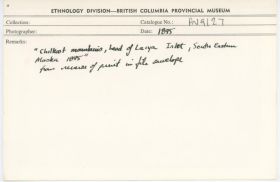 ETHNOLOGY DIVISION—BRITISH COLUMBIA PROVINCIAL MUSEUM
Collection: Catalogue No.: PN9127
Photographer: Date: 1895
Remarks:
"Chilkoot mountains, head of Lynn Inlet, South Eastern
Alaska 1895"
from reverse of print in file envelope